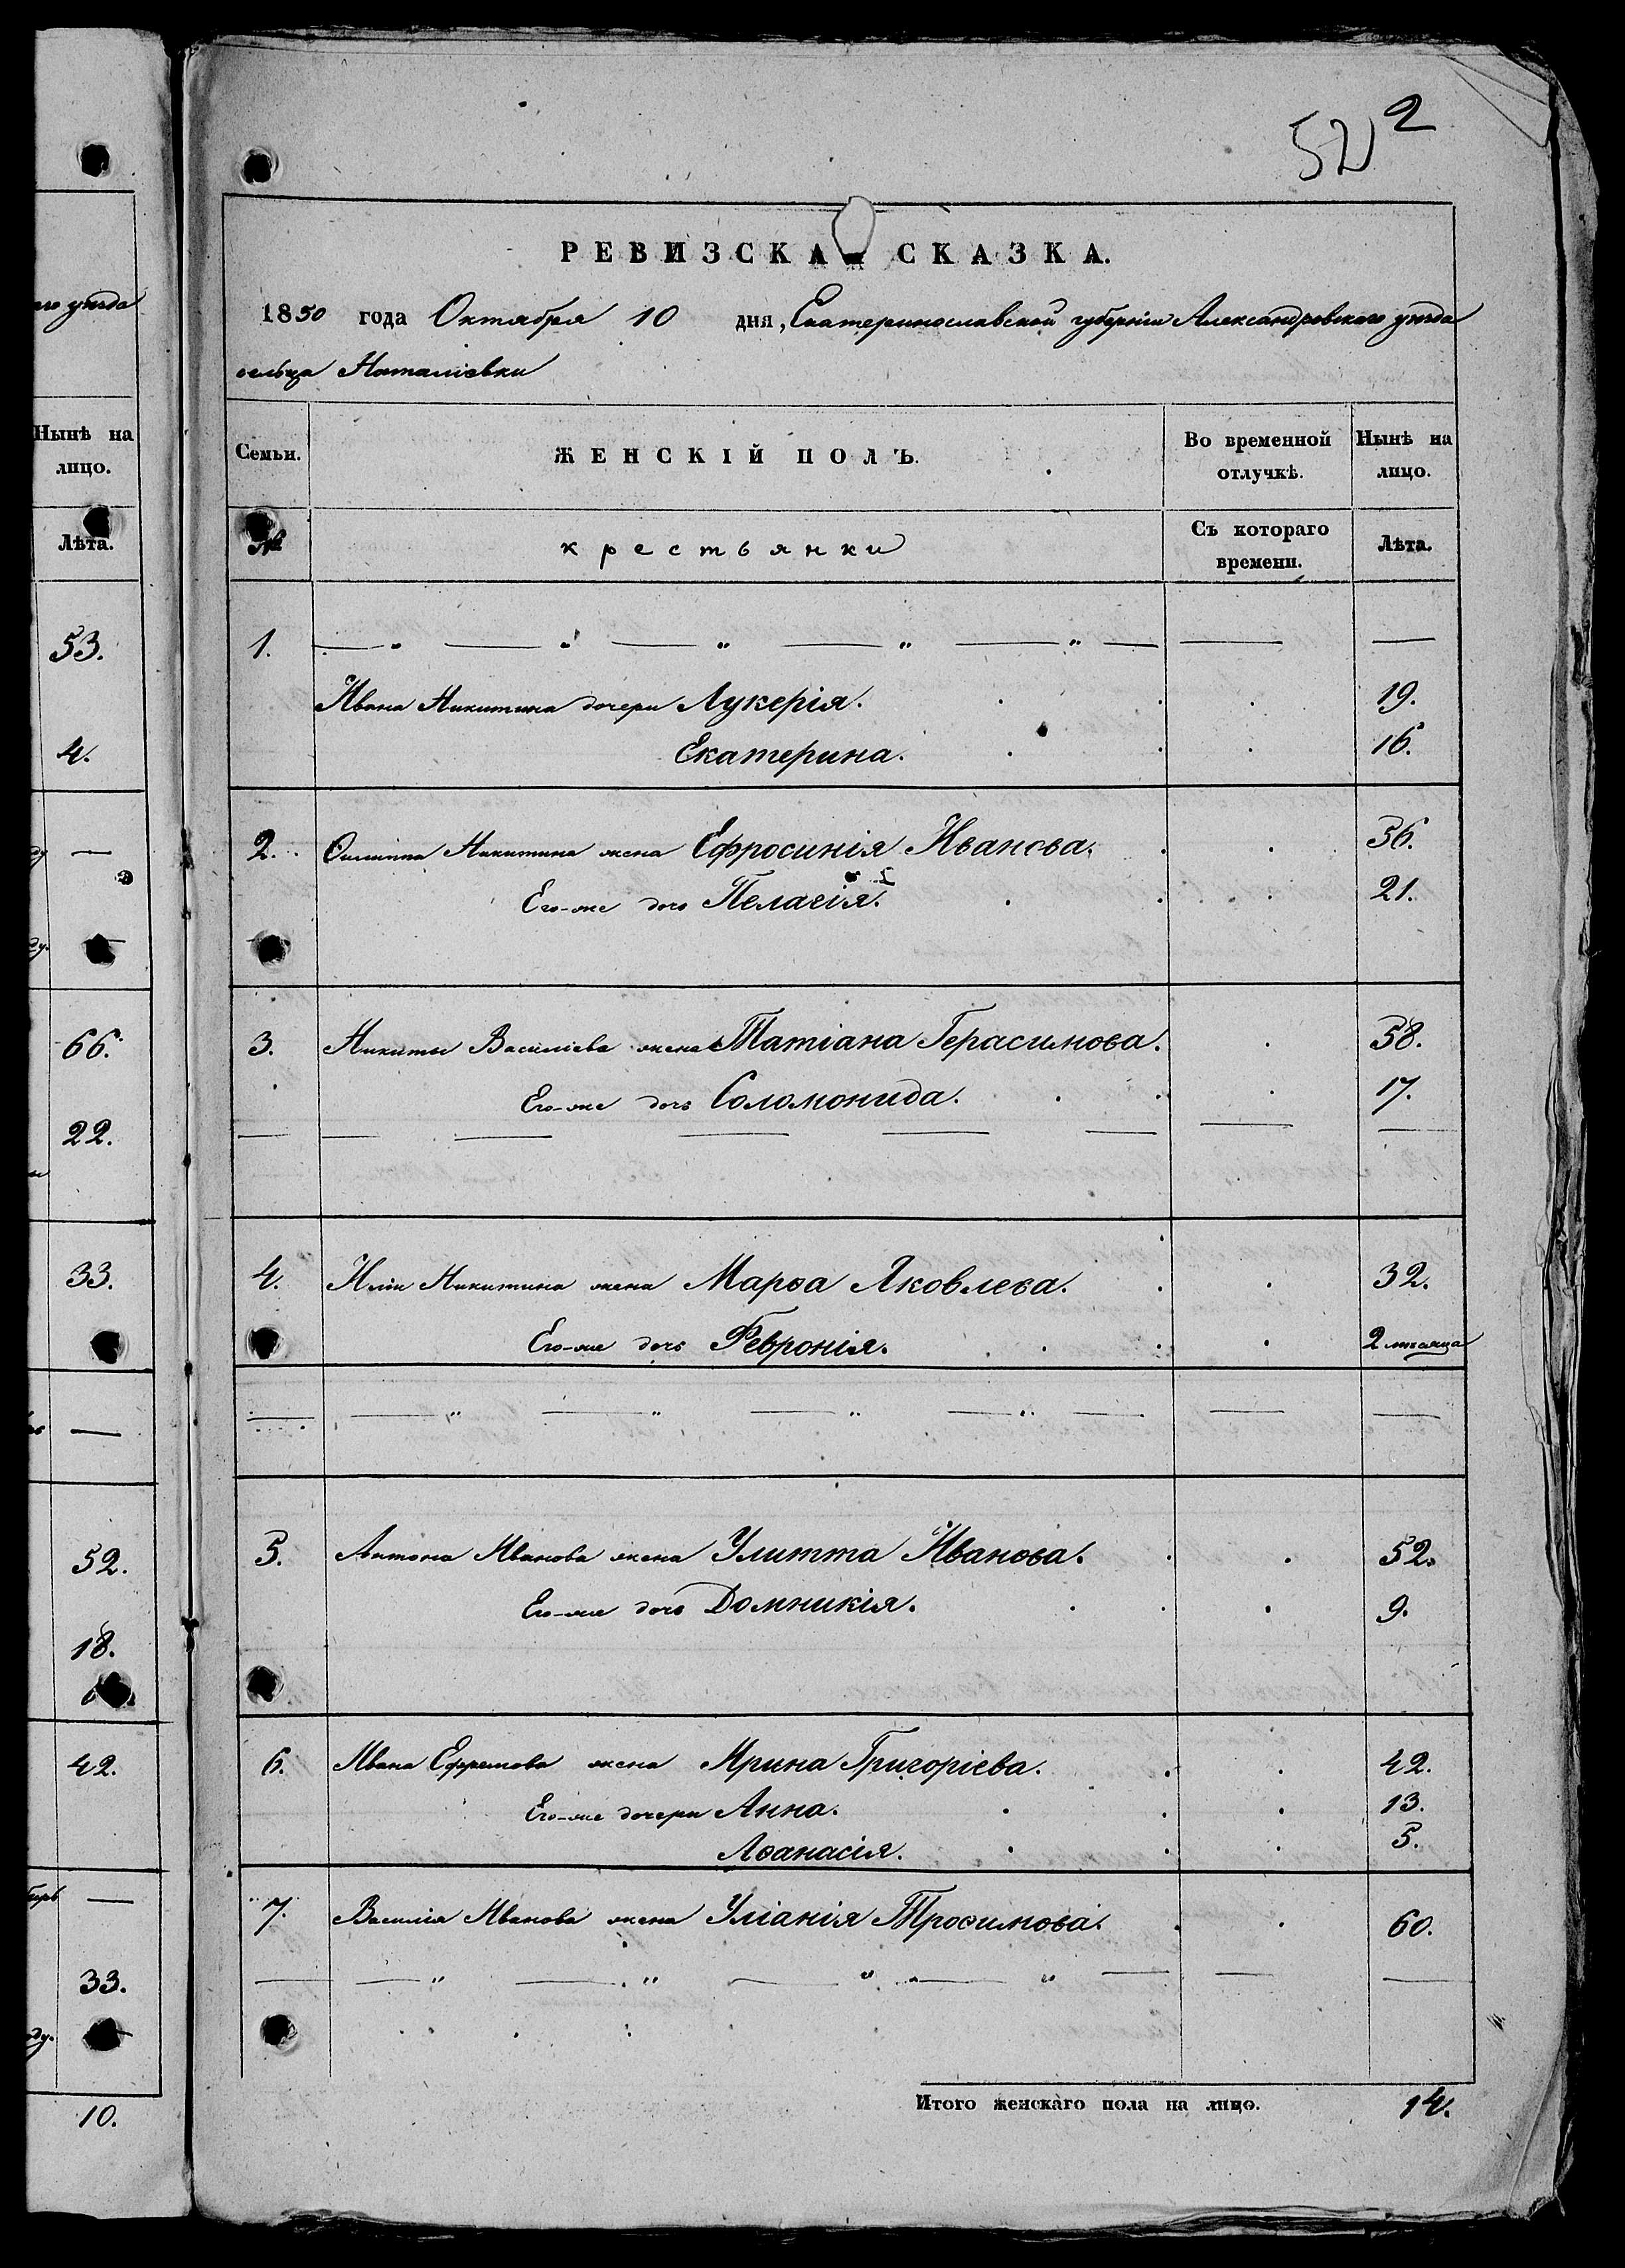 го уѣзда
Нынѣ на
лицо.
Лѣта.
53.
4.
—
66.
22.
33.
—
52.
18.
42.
—
33.
10.
52 2
РЕВИЗСКА СКАЗКА.
1850 года Октября 10 дня, Екатеринославской губерніи Александровского уѣзда
сельца Наталіевки
Семьи. ЖЕНСКІЙ ПОЛЪ. Во временной отлучкѣ. Нынѣ на лицо.
№ крестьянки Съ котораго времени. Лѣта.
1. — " — " — " — " — " — — —
Ивана Никитина дочери Лукерія. 19.
Екатерина. 16.
2. Филиппа Никитина жена Ефросинія Иванова. 56.
Его-же дочь Пелагія. 21.
3. Никиты Василіева жена Татіана Герасимова. 58.
Его-же дочь Соломонида. 17.
— — — — — — — —
4. Иліи Никитина жена Марѳа Яковлева. 32.
Его-же дочь Февронія. 2 мѣсяца
— — " — " — " — " — — —
5. Антона Иванова жена Улитта Иванова. 52.
Его-же дочь Домникія. 9.
6. Ивана Ефремова жена Ирина Григоріева. 42.
Его-же дочери Анна. 13.
Аѳанасія. 5.
7. Василія Иванова жена Уліанія Троѳимова. 60.
— — " — " — " — " — — —
Итого женскаго пола на лицо. 14.